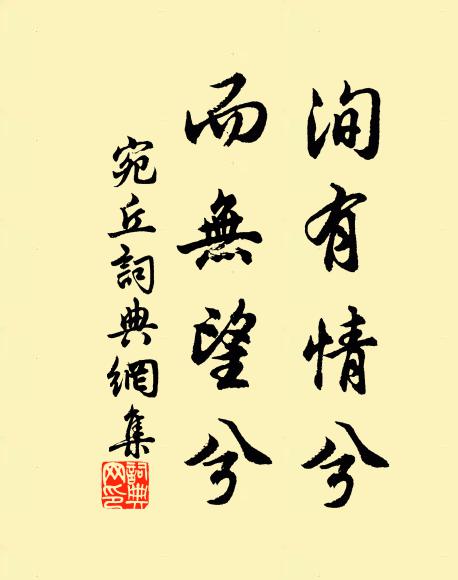 洵有情兮
而無望兮
宛丘詞典網集
詞典
网印